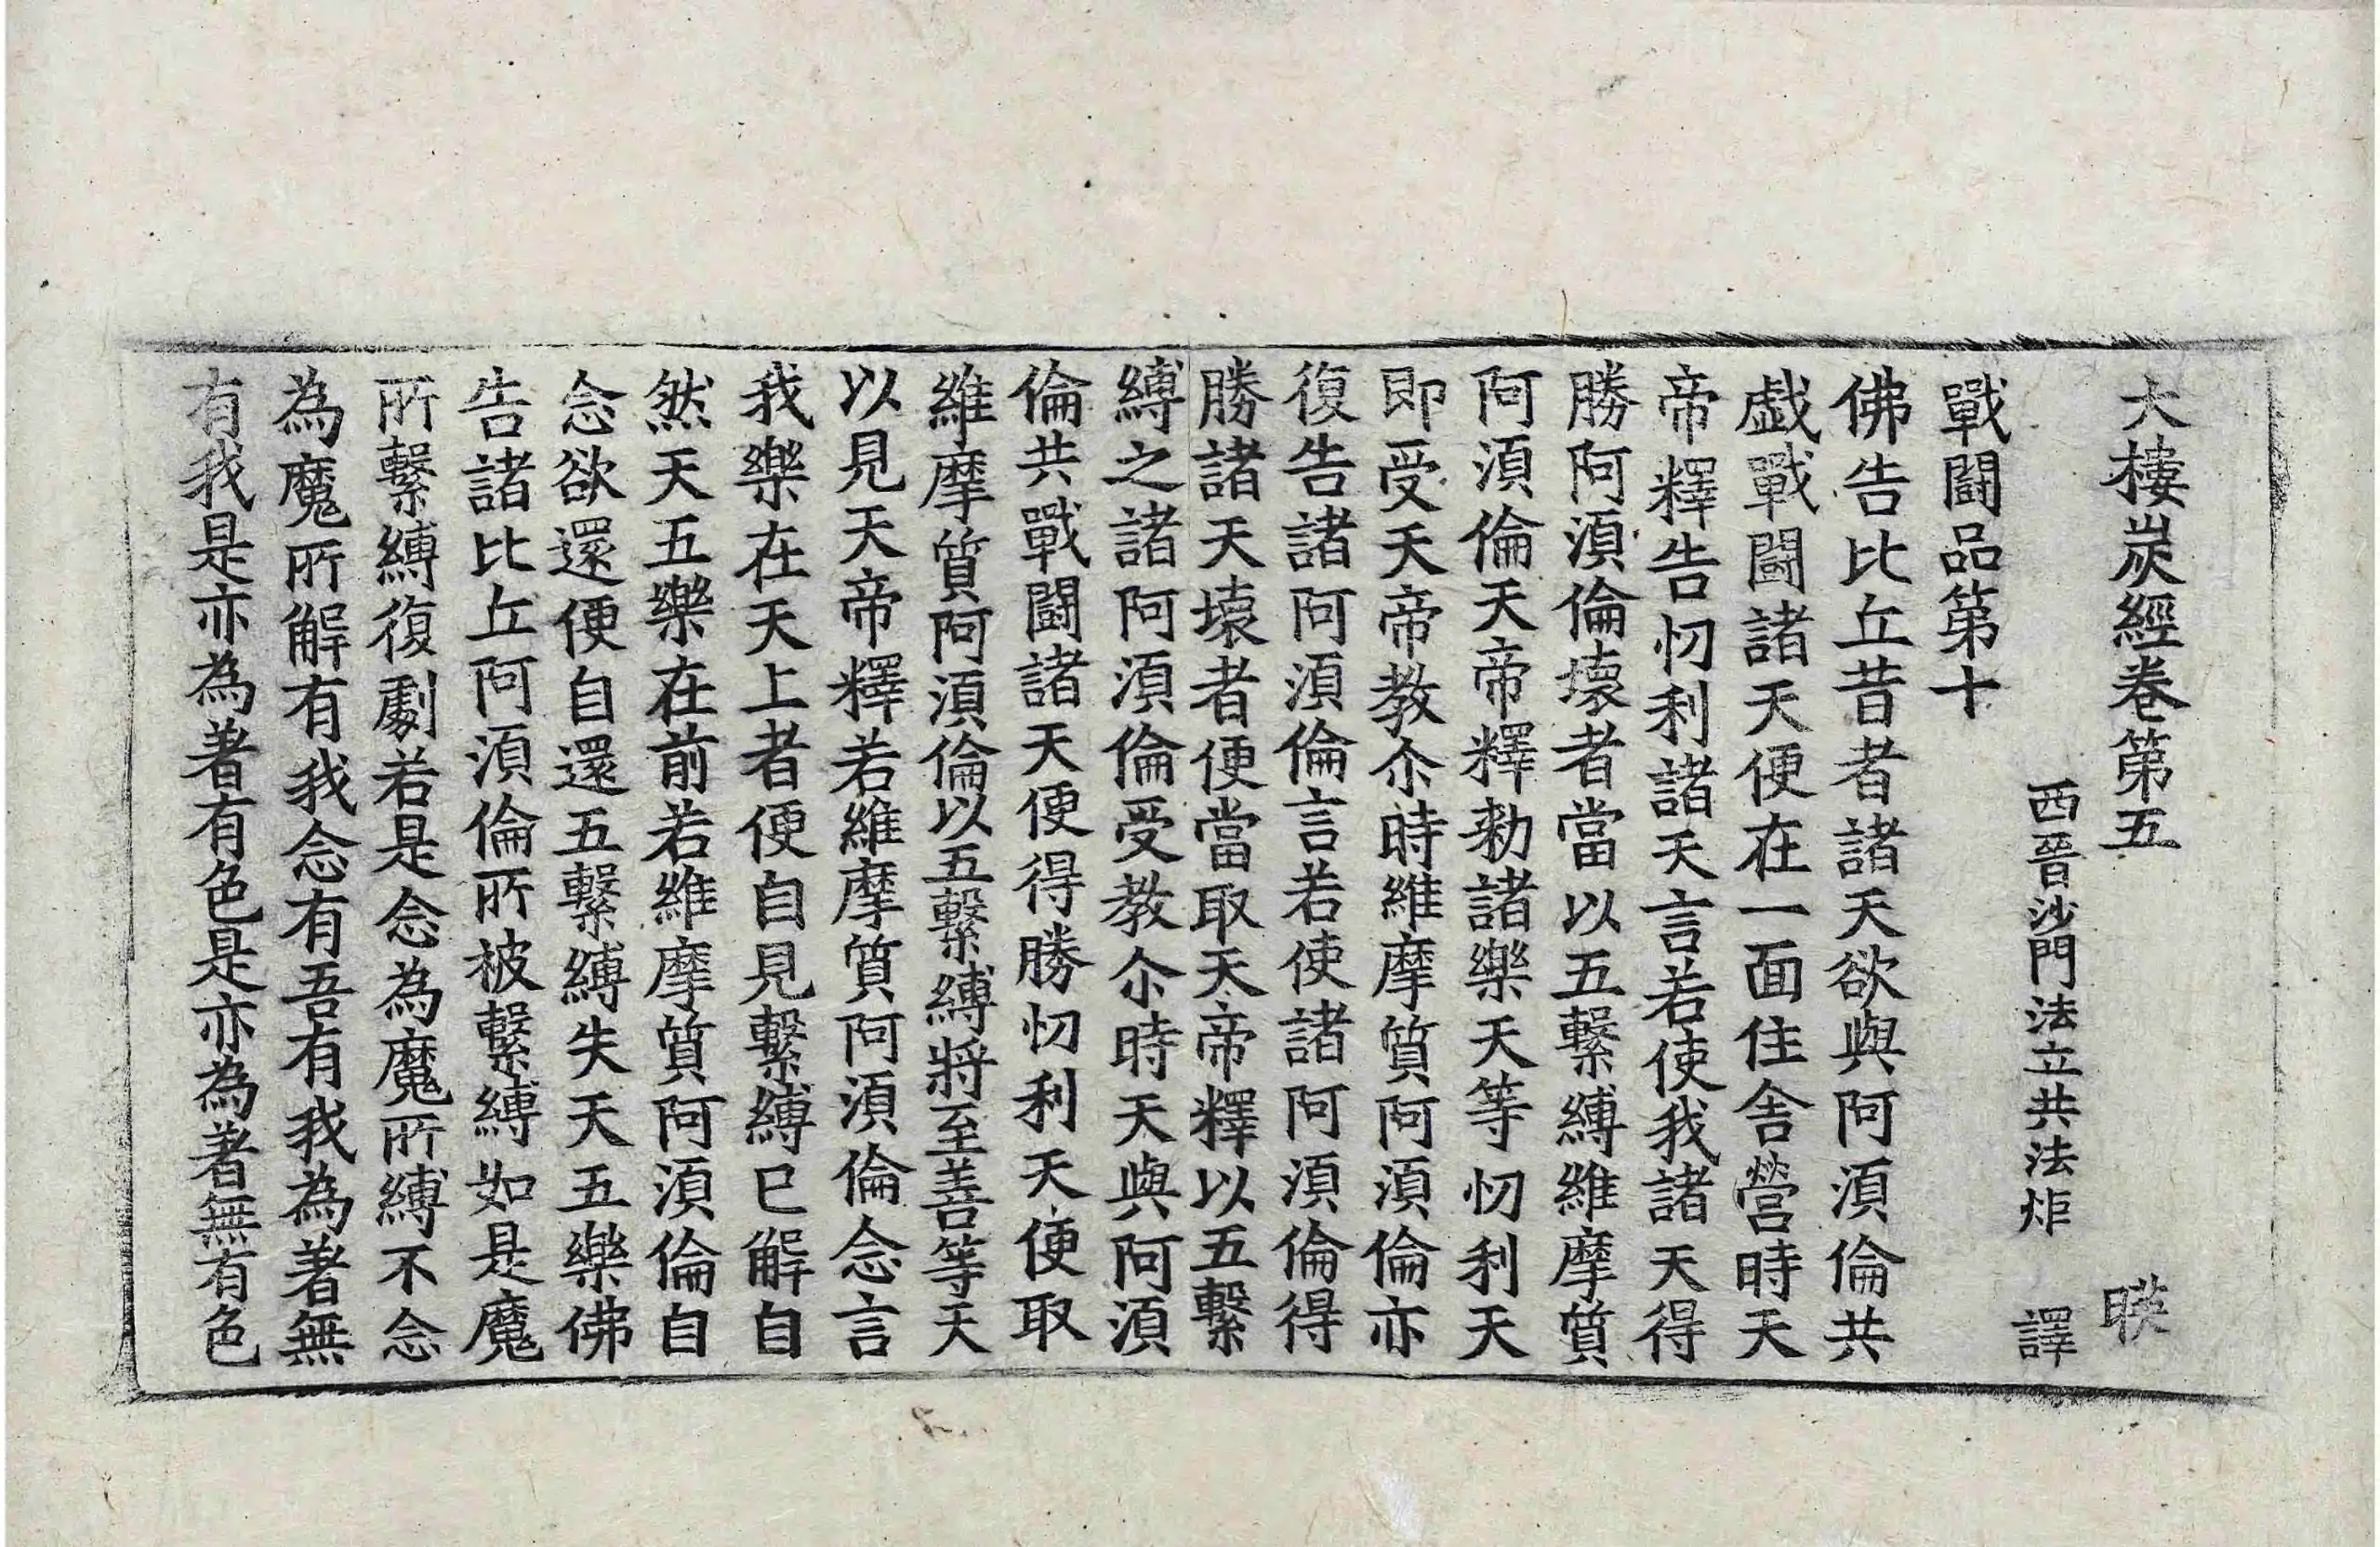 大樓炭經卷第五 暎
西晉沙門法立共法炬 譯
戰鬪品第十
佛告比丘昔者諸天欲與阿湏倫共
戱戰鬪諸天便在一面住舍營時天
帝釋告忉利諸天言若使我諸天得
勝阿湏倫壞者當以五繫縛維摩質
阿湏倫天帝釋勑諸樂天等忉利天
即受天帝教尒時維摩質阿湏倫亦
復告諸阿湏倫言若使諸阿湏倫得
勝諸天壞者便當取天帝釋以五繫
縛之諸阿湏倫受教尒時天與阿湏
倫共戰鬪諸天便得勝忉利天便取
維摩質阿湏倫以五繫縛將至善等天
以見天帝釋若維摩質阿湏倫念言
我樂在天上者便自見繫縛已解自
然天五樂在前若維摩質阿湏倫自
念欲還便自還五繫縛失天五樂佛
告諸比丘阿湏倫所被繫縛如是魔
所繫縛復劇若是念為魔所縛不念
為魔所解有我念有吾有我為著無
有我是亦為著有色是亦為著無有色